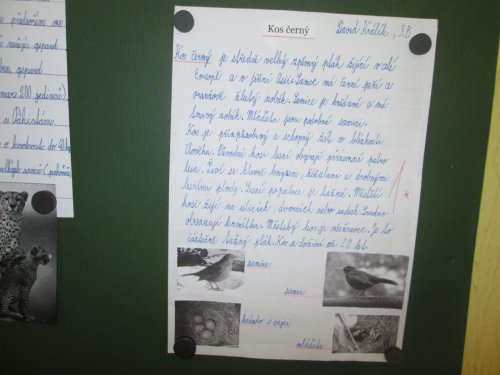 Kos černý
David Králík, 3.B
Kos černý je středně velký zpěvný pták žijící v celé
Evropě a v jižní Asii. Samec má černé peří a
oranžově žlutý zobák. Samice je hnědavá a má
tmavý zobák. Mláďata jsou podobné samice.
Kos je přizpůsobivý a schopný žít v blízkosti
člověka. Původní kosi lesní obývají přízemní patro
lesa. Živí se hlavně hmyzem, žížalami a drobnými
lesními plody. Lesní populace je tažná. Městští
kosi žijí na ulicích, dvorcích nebo sadech. Snadno
obsazují krmítka. Městský kos je nestěhovavý. Je to
částečně tažný pták. Kos se dožívá až 20 let.
1*
samice
samec
hnízdo s vejci
mláďata
gepard
200 jedinců)
a Pákistánu
o hmotnosti do 40 kg